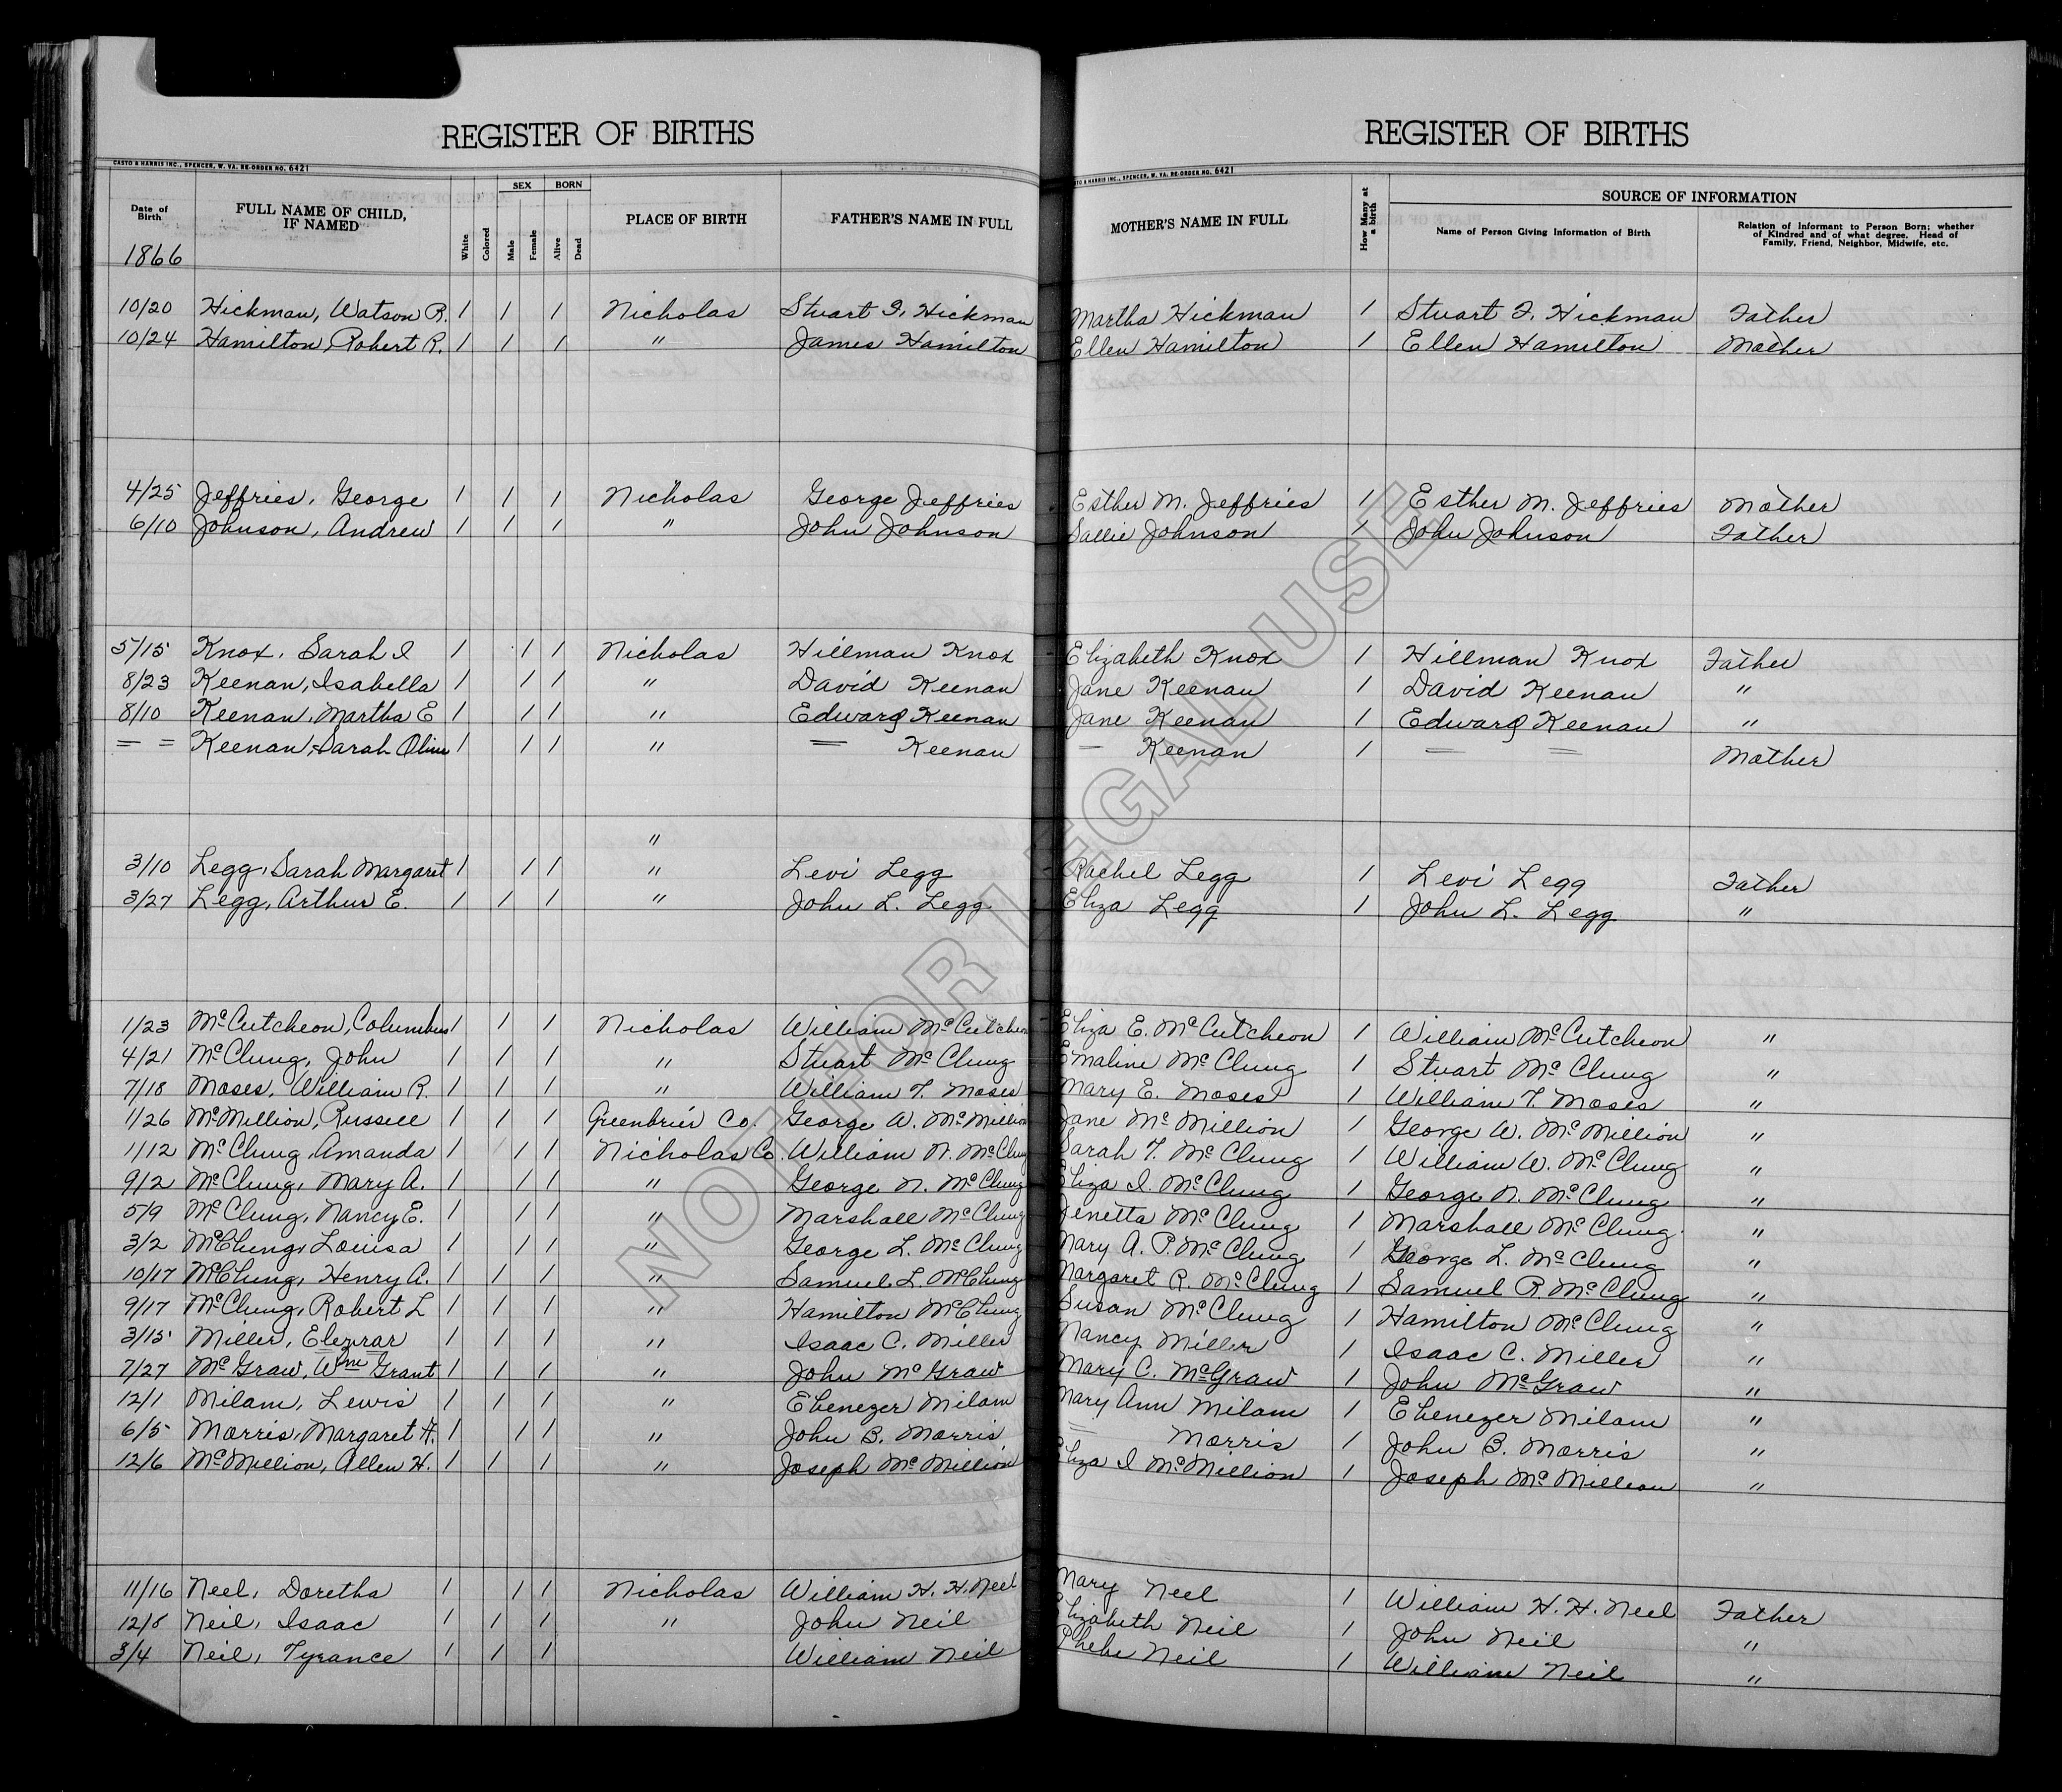 REGISTER OF BIRTHS
CASTO & HARRIS INC., SPENCER, W. VA. RE-ORDER NO. 6421
Date of Birth FULL NAME OF CHILD, IF NAMED White Colored SEX Male Female BORN Alive Dead PLACE OF BIRTH FATHER'S NAME IN FULL
1866
REGISTER OF BIRTHS
CASTO & HARRIS INC., SPENCER, W. VA. RE-ORDER NO. 6421
MOTHER'S NAME IN FULL How Many at a birth SOURCE OF INFORMATION Name of Person Giving Information of Birth Relation of Informant to Person Born; whether of Kindred and of what degree. Head of Family, Friend, Neighbor, Midwife, etc.
10/20 Hickman, Watson R. 1 1 1 Nicholas Stuart F. Hickman Martha Hickman 1 Stuart F. Hickman Father
10/24 Hamilton, Robert R. 1 1 1 " James Hamilton Ellen Hamilton 1 Ellen Hamilton Mother
4/25 Jeffries, George 1 1 1 Nicholas George Jeffries Esther M. Jeffries 1 Esther M. Jeffries Mother
6/10 Johnson, Andrew 1 1 1 " John Johnson Sallie Johnson 1 John Johnson Father
5/15 Knox, Sarah I 1 1 1 Nicholas Hillman Knox Elizabeth Knox 1 Hillman Knox Father
8/23 Keenan, Isabella 1 1 1 " David Keenan Jane Keenan 1 David Keenan "
8/10 Keenan, Martha E 1 1 1 " Edward Keenan Jane Keenan 1 Edward Keenan "
= = Keenan, Sarah 1 1 1 " = Keenan = Keenan 1 = = Mother
"
3/10 Legg, Sarah Margaret 1 1 1 " Levi Legg Rachel Legg 1 Levi Legg Father
3/27 Legg, Arthur E. 1 1 1 " John L. Legg Eliza Legg 1 John L. Legg "
1/23 McCutcheon, Columbus 1 1 1 Nicholas William McCutcheon Eliza E. McCutcheon 1 William McCutcheon "
4/21 McClung, John 1 1 1 " Stuart McClung Emaline McClung 1 Stuart McClung "
7/18 Moses, William R. 1 1 1 " William T. Moses Mary E. Moses 1 William T. Moses "
1/26 McMillion, Russell 1 1 1 Greenbrier Co. George W. McMillion Jane McMillion 1 George W. McMillion "
1/12 McClung, Amanda 1 1 1 Nicholas Co. William W. McClung Sarah T. McClung 1 William W. McClung "
9/2 McClung, Mary A. 1 1 1 " George N. McClung Eliza I. McClung 1 George N. McClung "
5/9 McClung, Nancy E. 1 1 1 " Marshall McClung Jenetta McClung 1 Marshall McClung "
3/2 McClung, Louisa 1 1 1 " George L. McClung Mary A. P. McClung 1 George L. McClung "
10/17 McClung, Henry A. 1 1 1 " Samuel L. McClung Margaret R. McClung 1 Samuel R. McClung "
9/17 McClung, Robert L 1 1 1 " Hamilton McClung Susan McClung 1 Hamilton McClung "
3/15 Miller, Elezirar 1 1 1 " Isaac C. Miller Nancy Miller 1 Isaac C. Miller "
7/27 McGraw, Wm Grant 1 1 1 " John McGraw Mary C. McGraw 1 John McGraw "
12/1 Milam, Lewis 1 1 1 " Ebenezer Milam Mary Ann Milam 1 Ebenezer Milam "
6/5 Morris, Margaret A. 1 1 1 " John B. Morris = Morris 1 John B. Morris "
12/6 McMillion, Allen H. 1 1 1 " Joseph McMillion Eliza I McMillion 1 Joseph McMillion "
11/16 Neel, Doretha 1 1 1 Nicholas William H. H. Neel Mary Neel 1 William H. H. Neel Father
12/8 Neil, Isaac 1 1 1 " John Neil Elizabeth Neil 1 John Neil "
3/4 Neil, Tyrance 1 1 1 William Neil Phebe Neil 1 William Neil "
NOT FOR LEGAL USE